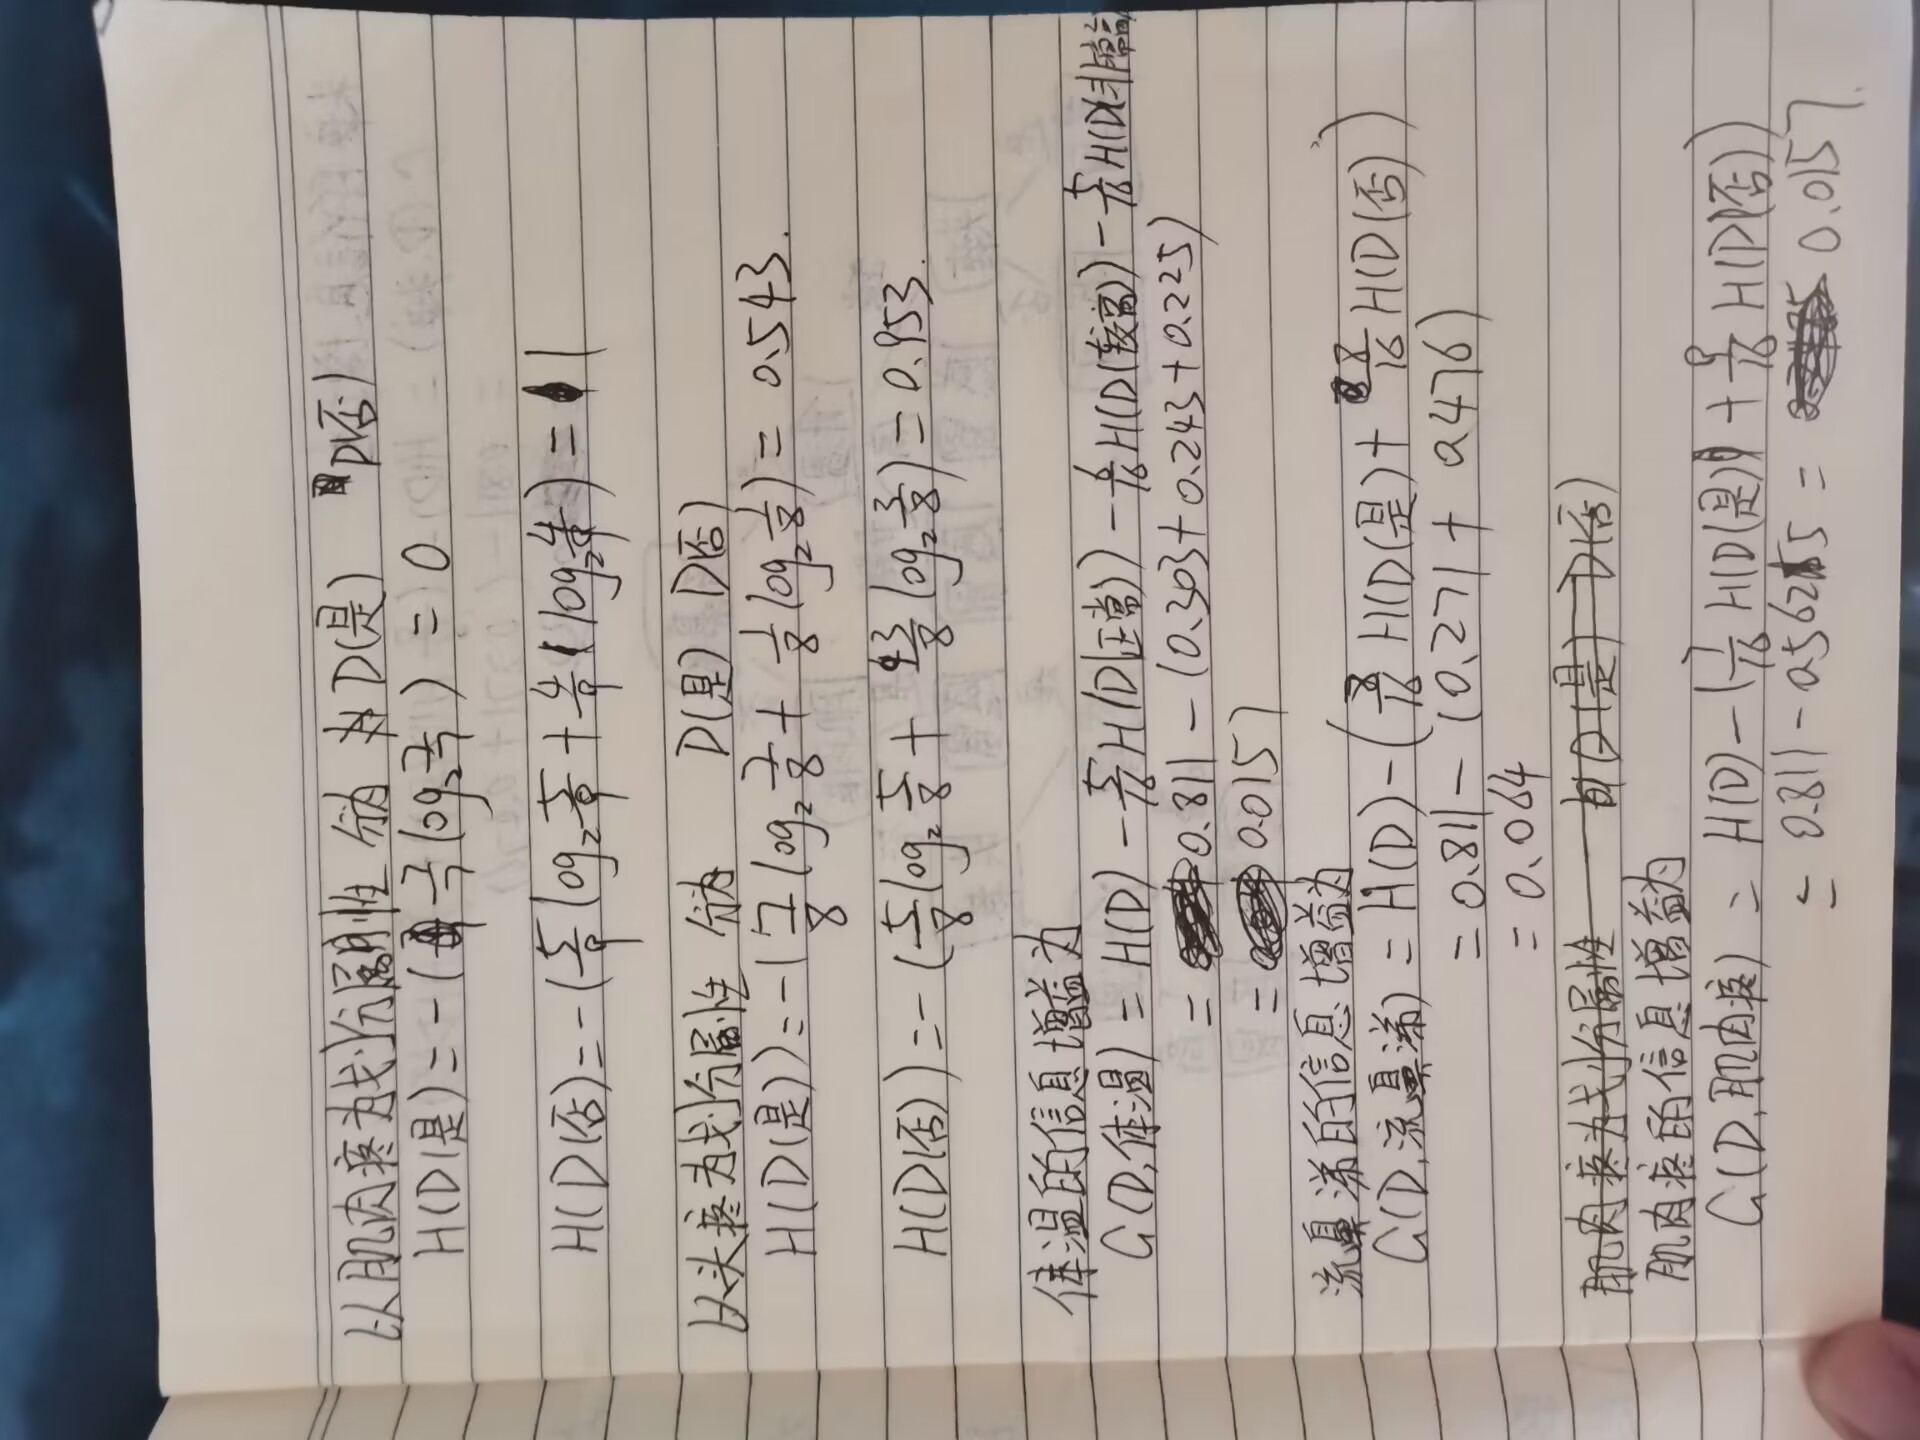 以肌肉疼为划分属性 分为 D(是) D(否)
H(D(是)) = -(7/7 log₂ 7/7) = 0
H(D(否)) = -(5/9 log₂ 5/9 + 4/9 log₂ 4/9) = 1
以头疼为划分属性 分为 D(是) D(否)
H(D(是)) = -(7/8 log₂ 7/8 + 1/8 log₂ 1/8) = 0.543.
H(D(否)) = -(5/8 log₂ 5/8 + 3/8 log₂ 3/8) = 0.953.
体温的信息增益为
G(D,体温) = H(D) - 5/16 H(D(正常)) - 6/16 H(D(较高)) - 5/16 H(D(非常高
= 0.811 - (0.303 + 0.243 + 0.225)
= 0.0157
流鼻涕的信息增益为
G(D,流鼻涕) = H(D) - (8/16 H(D(是)) + 8/16 H(D(否))
= 0.811 - (0.271 + 0.476)
= 0.064
肌肉疼为划分属性 D(是) D(否)
肌肉疼的信息增益为
G(D,肌肉疼) = H(D) - (7/16 H(D(是)) + 9/16 H(D(否))
= 0.811 - 0.5625 = 0.0157.